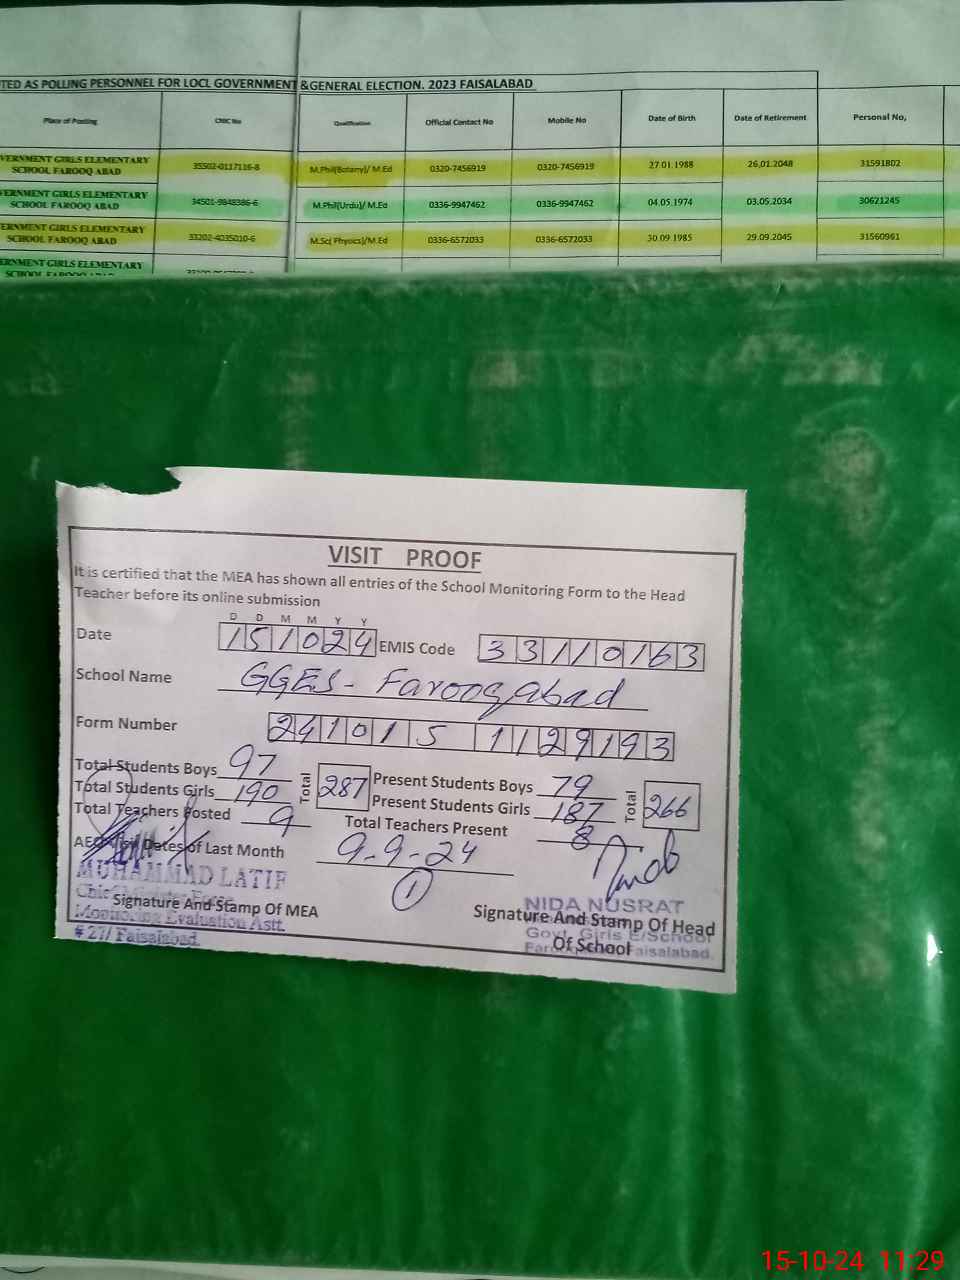 TED AS POLLING PERSONNEL FOR LOCL GOVERNMENT &GENERAL ELECTION. 2023 FAISALABAD
Place of Posting CNIC No Qualification Official Contact No Mobile No Date of Birth Date of Retirement Personal No,
VERNMENT GIRLS ELEMENTARY
SCHOOL FAROOQ ABAD 35502-0117116-8 M.Phil(Botany)/ M.Ed 0320-7456919 0320-7456919 27.01.1988 26,01.2048 31591802
VERNMENT GIRLS ELEMENTARY
SCHOOL FAROOQ ABAD 34501-9848386-6 M.Phil(Urdu)/ M.Ed 0336-9947462 0336-9947462 04.05.1974 03.05.2034 30621245
VERNMENT GIRLS ELEMENTARY
SCHOOL FAROOQ ABAD 33202-4035010-6 M.Sc( Physics)/M.Ed 0336-6572033 0336-6572033 30.09.1985 29.09.2045 31560961
ERNMENT GIRLS ELEMENTARY
VISIT PROOF
It is certified that the MEA has shown all entries of the School Monitoring Form to the Head
Teacher before its online submission
D D M M Y Y
Date 151024 EMIS Code 33110163
School Name GGES - Farooqabad
Form Number 241015 1129193
Total Students Boys 97 Present Students Boys 79
Total Students Girls 190 Total 287 Present Students Girls 187 Total 266
Total Teachers Posted 9 Total Teachers Present 8
AEO Visit Dates of Last Month 9-9-24
1
MUHAMMAD LATIF
Signature And Stamp Of MEA
Monitoring Evaluation Astt.
# 27/ Faisalabad.
NIDA NUSRAT
Signature And Stamp Of Head
Govt. Girls E/School
Of School
Faisalabad.
15-10-24 11:29